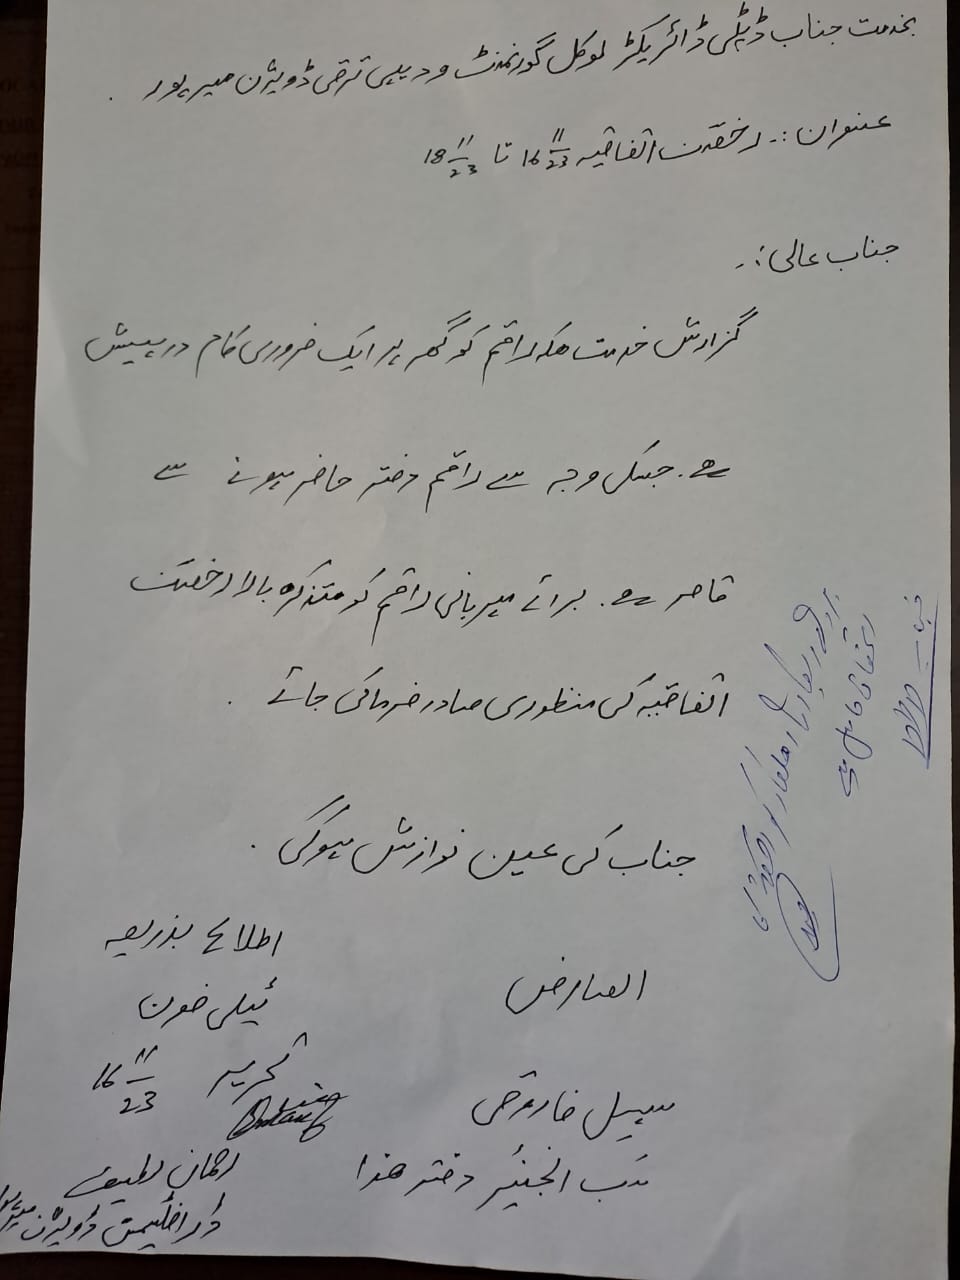 بخدمت جناب ڈپٹی ڈائریکٹر لوکل گورنمنٹ و دیہی ترقی ڈویژن میرپور ۔
عنوان :۔ رخصت اتفاقیہ 16/11/23 تا 18/11/23
جناب عالی :۔
گزارش خدمت ھیکہ راقم کو گھر پر ایک ضروری کام درپیش
ہے۔ جسکی وجہ سے راقم دفتر حاضر ہونے سے
قاصر ہے۔ برائے مہربانی راقم کو متذکرہ بالا رخصت
اتفاقیہ کی منظوری صادر فرمائی جائے ۔
جناب کی عین نوازش ہوگی ۔
اطلاع بذریعہ
ٹیلی فون
العارض
تحریر 16/11/23
سہیل فاروقی
سب انجینئر دفتر ھذا
لطیف
ڈویژن
جناب